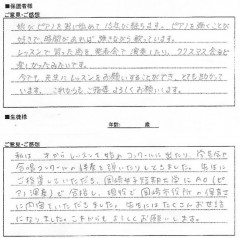 ■保護者様
ご意見・ご感想
娘がピアノを習い始めて15年が経ちます。ピアノを弾くことが
好きで、時間があれば弾きながら歌っています。
レッスンで習った曲を発表会で演奏したり、クリスマス会など
楽しかったみたいです。
今でも、先生にレッスンをお願いすることができ、とても助かって
います。これからもご指導よろしくお願いします。
■生徒様
年齢: 歳
ご意見・ご感想
私は、 才からレッスンを始め コンクールに出たり、学校
合唱コンクールの伴奏を頂いたりしました。先生に
ご指導していただき、岡崎女子短期大学にAO(ピ
アノ演奏)で合格し、現在で岡崎市役所の保育士
に内定をいただきました。先生にはたくさんお世話
になりました。これからもよろしくお願いします。